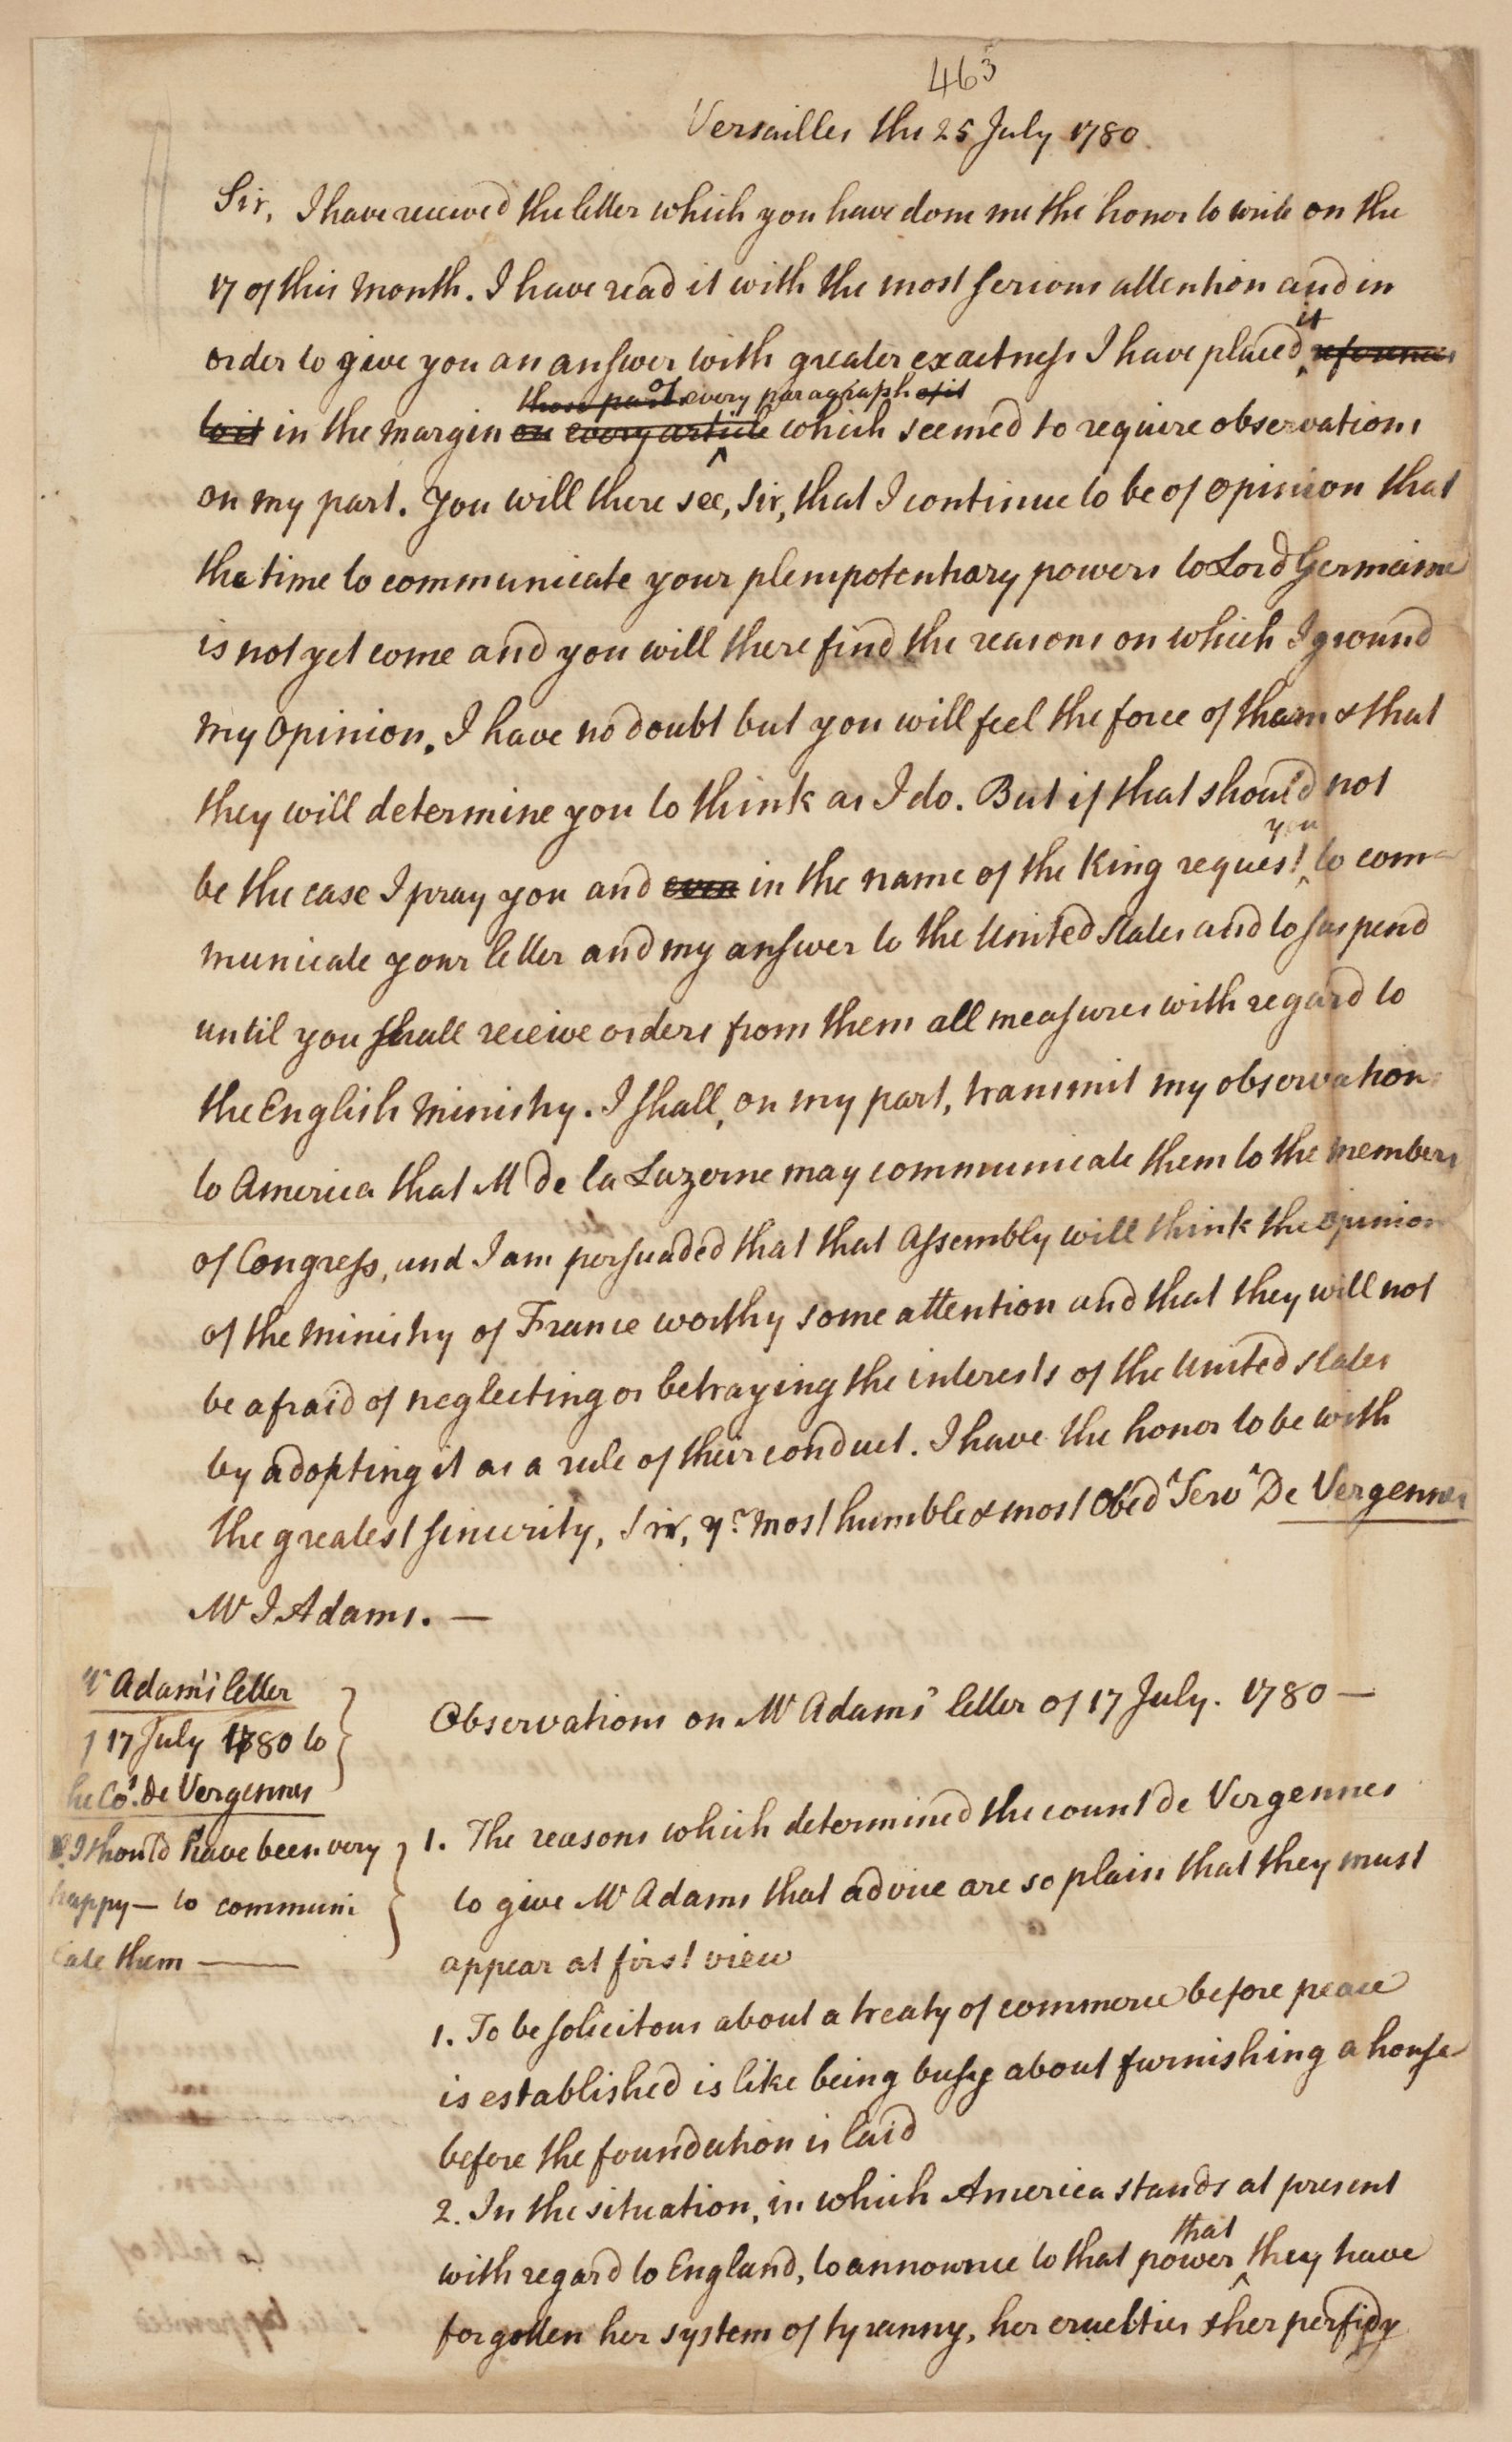 463
Versailles the 25 July 1780.
Sir, I have received the letter which you have done me the honor to write on the
17 of this Month. I have read it with the most serious attention and in
order to give you an answer with greater exactness I have placed it references
to it in the Margin on every article those parts of every paragraph of it which seemed to require observations
on my part. You will there see, Sir, that I continue to be of opinion that
the time to communicate your plenipotentiary powers to Lord Germaine
is not yet come and you will there find the reasons on which I ground
my Opinion. I have no doubt but you will feel the force of them & that
they will determine you to think as I do. But if that should not
be the case I pray you and even in the name of the King request you to com-
municate your letter and my answer to the United States and to suspend
until you shall receive orders from them all measures with regard to
the English Ministry. I shall, on my part, transmit my observations
to America that M de la Luzerne may communicate them to the members
of Congress, and I am persuaded that that Assembly will think the opinion
of the Ministry of France worthy some attention and that they will not
be afraid of neglecting or betraying the interests of the United States
by adopting it as a rule of their conduct. I have the honor to be with
the greatest sincerity, Sir, yr. Most humble & most Obedt Servt De Vergennes
Mr J Adams. —
Mr Adams's letter
f 17 July 1780 to
he Ct. de Vergennes
I should have been very
happy — to communi
cate them —
Observations on Mr Adams' letter of 17 July. 1780 —
1. The reasons which determined the count de Vergennes
to give Mr Adams that advice are so plain that they must
appear at first view
1. To be solicitous about a treaty of commerce before peace
is established is like being busy about furnishing a house
before the foundation is laid
2. In the situation, in which America stands at present
with regard to England, to announce to that power that they have
forgotten her system of tyranny, her cruelties & her perfidy